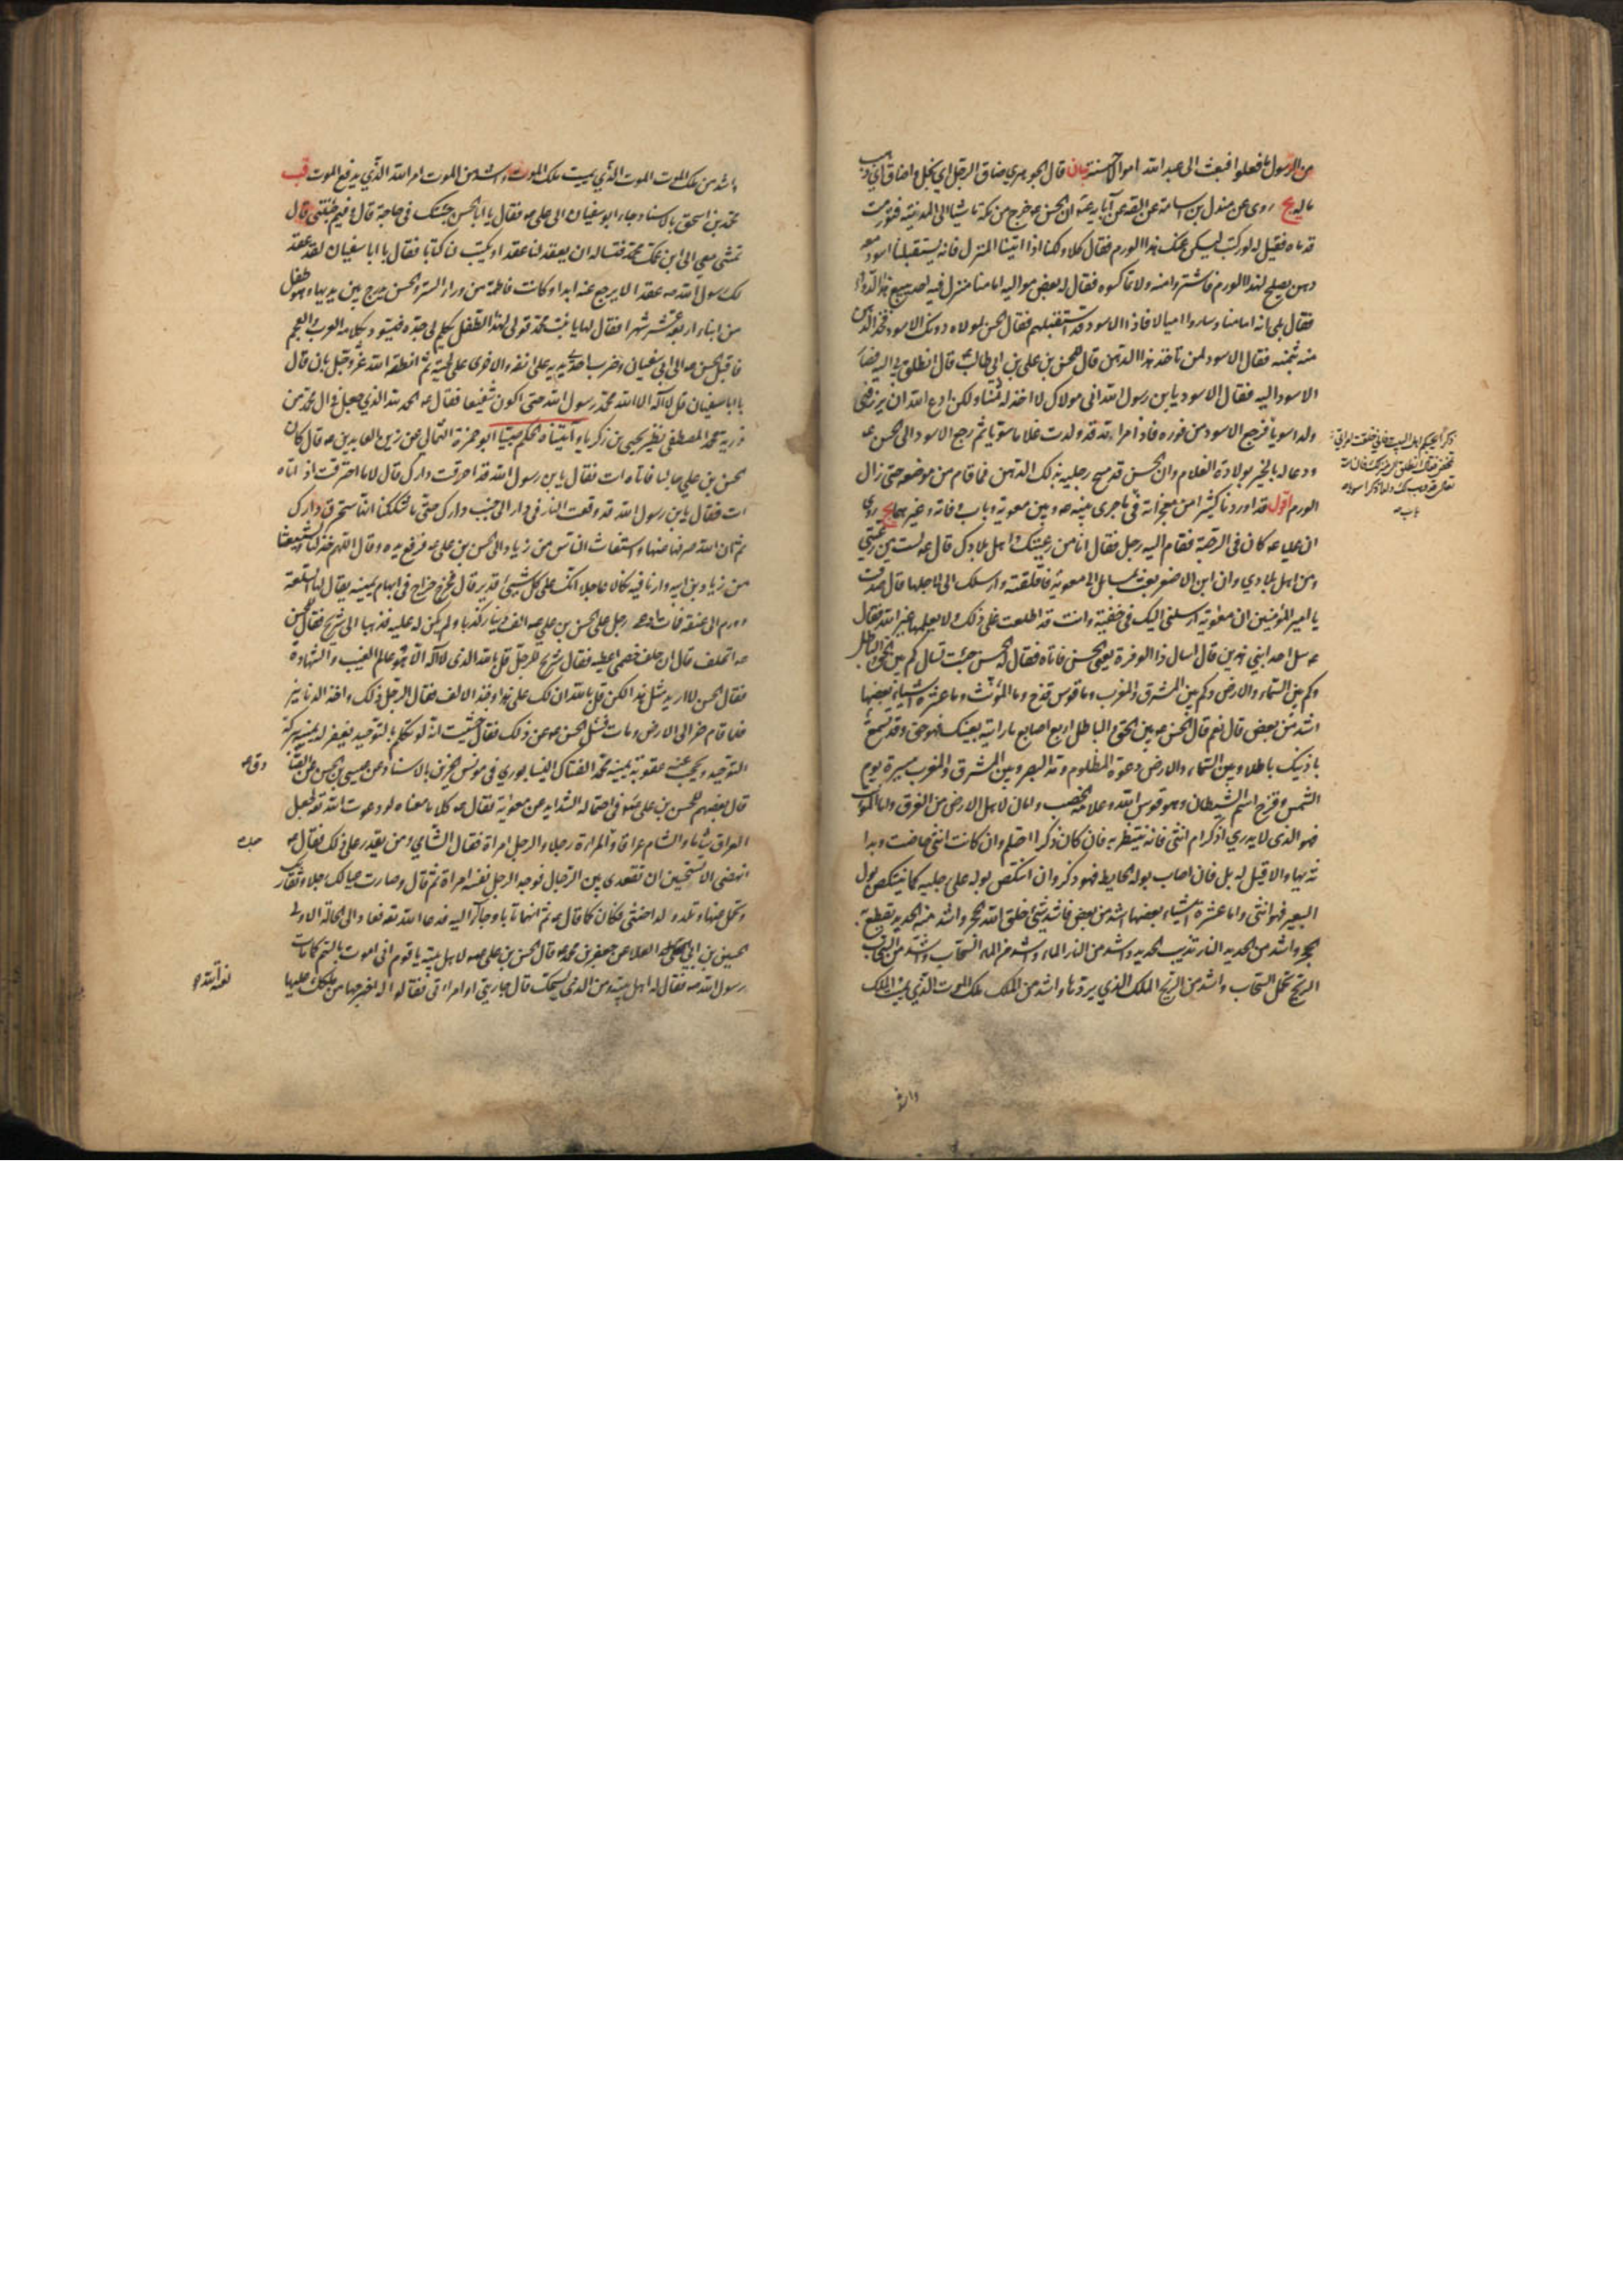 من الرسول ما فعلوا فبعث الى عبد الله اموالا حسنة بيان قال الجوهري ضاق الرجل اي بخل واضاق اي ذهب
ماله يج روى عن مندل بن اسامة عن الصه عن آبائه ع ان الحسن ع خرج من مكة ماشيا الى المدينة فتورمت
قدماه فقيل له لو ركبت ليسكن عنك هذا الورم فقال كلا ولكنا اذا اتينا المنزل فانه يستقبلنا اسود معه
دهن يصلح لهذا الورم فاشتروا منه ولا تماكسوه فقال له بعض مواليه امامنا منزل فيه احد يبيع هذا الدواء
فقال بلى انه امامنا وساروا اميالا فاذا الاسود قد استقبلهم فقال الحسن لمولاه دونك الاسود فخذ الدهن
منه بثمنه فقال الاسود لمن تاخذ هذا الدهن قال للحسن بن علي بن ابي طالب ع قال انطلق بي اليه فصار
الاسود اليه فقال الاسود يابن رسول الله اني مولاك لا اخذ له ثمنا ولكن ادع الله ان يرزقني
ولدا سويا فرجع الاسود من فوره فاذا امراته قد ولدت غلاما سويا ثم رجع الاسود الى الحسن ع
ودعا له بالخير بولادة الغلام وان الحسن قد مسح رجليه بذلك الدهن فما قام من موضعه حتى زال
الورم اقول قد اوردنا كثيرا من معجزاته في ما جرى بينه ع وبين معوية وباب وفاته وغيرهما يج روى
ان عليا ع كان في الرحبة فقام اليه رجل فقال انا من رعيتك واهل بلادك قال ع لست من رعيتي
ولا من اهل بلادي وان ابن الاصفر بعث بمسايل الى معوية فاقلقته وارسلك الي لاجلها قال صدقت
يا امير المؤمنين ان معوية ارسلني اليك في خفية وانت قد اطلعت على ذلك ولا يعلمها غير الله فقال
ع سل احد ابني هذين قال اسال ذا الوفرة يعني الحسن فاتاه فقال له الحسن جئت تسال كم بين الحق والباطل
وكم بين السماء والارض وكم بين المشرق والمغرب وما قوس قزح وما المؤنث وما عشرة اشياء بعضها
اشد من بعض قال نعم قال الحسن ع بين الحق والباطل اربع اصابع ما رايته بعينك فهو حق وقد تسمع
باذنيك باطلا وبين السماء والارض دعوة المظلوم ومد البصر وبين المشرق والمغرب مسيرة يوم
الشمس وقزح اسم الشيطان وهو قوس الله وعلامة الخصب وامان لاهل الارض من الغرق واما المؤنث
فهو الذي لا يدري اذكر ام انثى فانه ينتظر به فان كان ذكرا احتلم وان كانت انثى حاضت وبدا
ثديها والا قيل له بل فان اصاب بوله الحايط فهو ذكر وان انتكص بوله على رجليه كما ينتكص بول
البعير فهو انثى واما عشرة اشياء بعضها اشد من بعض فاشد شئ خلق الله الحجر واشد منه الحديد يقطع به
الحجر واشد من الحديد النار تذيب الحديد واشد من النار الماء واشد من الماء السحاب واشد من السحاب
الريح تحمل السحاب واشد من الريح الملك الذي يردها واشد من الملك ملك الموت الذي يميت الملك
واشد
واشد من ملك الموت الموت الذي يميت ملك الموت واشد من الموت امر الله الذي يدفع الموت قب
محمد بن اسحق بالاسناد جاء ابو سفيان الى علي ع فقال يا ابا الحسن جئتك في حاجة قال وفيم جئتني قال
تمشي معي الى ابن عمك محمد فتساله ان يعقد لنا عقدا ويكتب لنا كتابا فقال يا ابا سفيان لقد عقد
لك رسول الله ص عقدا لا يرجع عنه ابدا وكانت فاطمة من وراء الستر والحسن يدرج بين يديها وهو طفل
من ابناء اربعة عشر شهرا فقال لها يا بنت محمد قولي لهذا الطفل يكلم لي جده فيسود بكلامه العرب والعجم
فاقبل الحسن ع الى ابي سفيان وضرب باحدى يديه على انفه والاخرى على لحيته ثم انطقه الله عز وجل بان قال
يا ابا سفيان قل لا اله الا الله محمد رسول الله حتى اكون شفيعا فقال ع الحمد لله الذي جعل في ال محمد من
ذرية محمد المصطفى نظير يحيى بن زكريا وآتيناه الحكم صبيا ابو حمزة الثمالي عن زين العابدين ع قال كان
الحسن بن علي جالسا فاتاه ات فقال يابن رسول الله قد احترقت دارك قال لا ما احترقت اذ اتاه
ات فقال يابن رسول الله قد وقعت النار في دار الى جنب دارك حتى ما شككنا انها ستحرق دارك
ثم ان الله صرفها عنها واستغاث الناس من زياد الى الحسن بن علي ع فرفع يده وقال اللهم خذ لنا ولشيعتنا
من زياد بن ابيه وارنا فيه نكالا عاجلا انك على كل شيئ قدير قال فخرج خراج في ابهام يمينه يقال لها السلعة
وورم الى عنقه فمات ادعى رجل على الحسن بن علي ع الف دينار كذبا ولم يكن له عليه فذهبا الى شريح فقال للحسن
ع اتحلف قال ان حلف خصمي اعطيه فقال شريح للرجل قل بالله الذي لا اله الا هو عالم الغيب والشهادة
فقال الحسن لا اريد مثل هذا لكن قل بالله ان لك علي هذا وخذ الالف فقال الرجل ذلك واخذ الدنانير
فلما قام خر الى الارض ومات فسئل الحسن ع عن ذلك فقال خشيت انه لو تكلم بالتوحيد يغفر له يمينه ببركة
التوحيد ويحجب عنه عقوبة يمينه محمد الفتال النيسابوري في مونس الحزين بالاسناد عن عيسى بن الحسن عن الصا
قال بعضهم للحسن بن علي ع في احتماله الشدايد عن معوية فقال ع كلاما معناه لو دعوت الله تع لجعل
العراق شاما والشام عراقا والمراة رجلا والرجل امراة فقال الشامي ومن يقدر على ذلك فقال ع
انهضي الا تستحين ان تقعدي بين الرجال فوجد الرجل نفسه امراة ثم قال وصارت عيالك رجلا وتقاربك
وتحمل عنها وتلد ولدا خنثى فكان كما قال ع ثم انهما تابا وجاءا اليه فدعا الله تع فعادا الى الحالة الاولى
الحسين بن ابي العلا عن جعفر بن محمد ع قال الحسن بن علي ع لاهل بيته يا قوم اني اموت بالسم كما مات
رسول الله ص فقال له اهل بيته ومن الذي يسمك قال جاريتي او امراتي فقالوا له اخرجها من ملكك عليها
لعنة الله